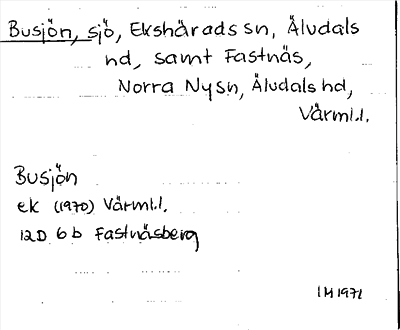 Busjön, sjö, Ekshärads sn, Älvdals
hd, samt Fastnäs,
Norra Ny sn, Älvdals hd,
Värml.l.
Busjön
ek (1970) Värml.l.
12D 6b Fastnäsberg
IM1971